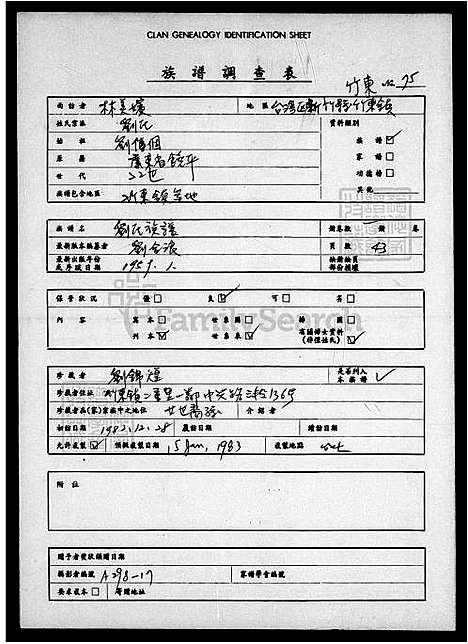 CLAN GENEALOGY IDENTIFICATION SHEET
族譜調查表
竹東 No. 75
面訪者 林美 地區 台灣區新竹縣竹東鎮
姓氏宗派 劉氏 資料類別
始祖 劉 個 族譜 ☑
原籍 廣東省饒平 家譜 □
世代 22世 功德榜 □
族譜包含地區 竹東鎮等地 其他
譜名 劉氏族譜 冊卷數 一冊 卷
最新版本編纂者 劉金 頁數 43
最新出版年份或序跋日期 195 . 1.
保管狀況 優 □ 良 ☑ 可 □ 劣 □
內容 寫本 世系圖 □ 插圖 □
刊本 世系表 有關婦女資料(得僅姓氏)
FamilySearch
珍藏者 劉錦煌 是否列入本族譜 ✓
珍藏者住址 東鎮二重里一鄰中興路三段136號
珍藏者在(家)宗族中之地位 廿世裔孫 介紹者
初訪日期 1982.12.28 複訪日期 續訪日期
允許複製 ☑ 預擬複製日期 15 Jan, 1983 複製地點
附註
贈予者受狀頒贈日期
攝影者編號 A298-17 家譜學會編號
要求複本 □ 寄贈地址